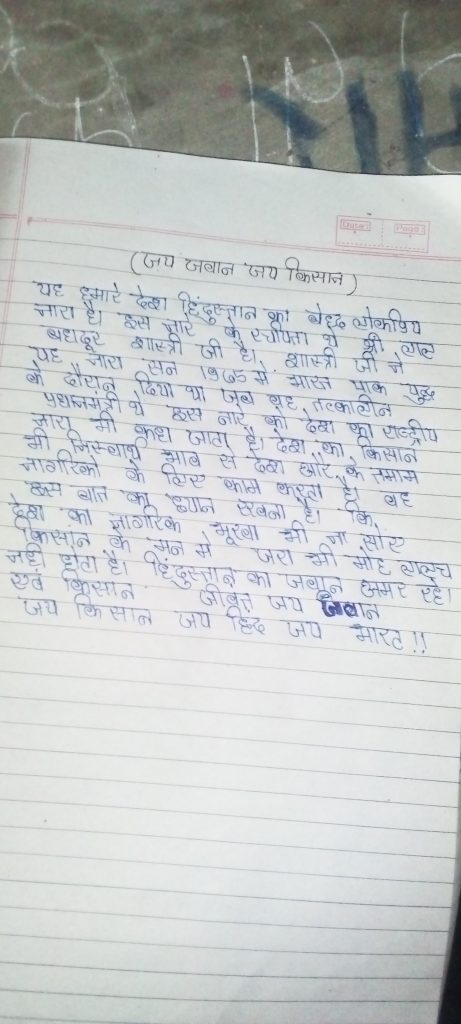 Date:
Page:
(जय जवान जय किसान)
यह हमारे देश हिंदुस्तान का बेहद लोकप्रिय
नारा है। इस नारे के रचयिता थे श्री लाल
बहादुर शास्त्री जी है। शास्त्री जी ने
यह नारा सन 1965 में भारत पाक युद्ध
के दौरान दिया था जब वह तत्कालीन
प्रधानमंत्री थे इस नारे को देश का राष्ट्रीय
नारा भी कहा जाता है। देश का किसान
भी निस्वार्थ भाव से देश और के तमाम
नागरिकों के लिए काम करता है। वह
इस बात का ध्यान रखना है। कि,
देश का नागरिक भूखा भी ना सोए
किसान के मन मे जरा भी मोह लालच
नही होता है। हिंदुस्तान का जवान अमर रहे।
एवं किसान जीवित जय जवान
जय किसान जय हिंद जय भारत !!